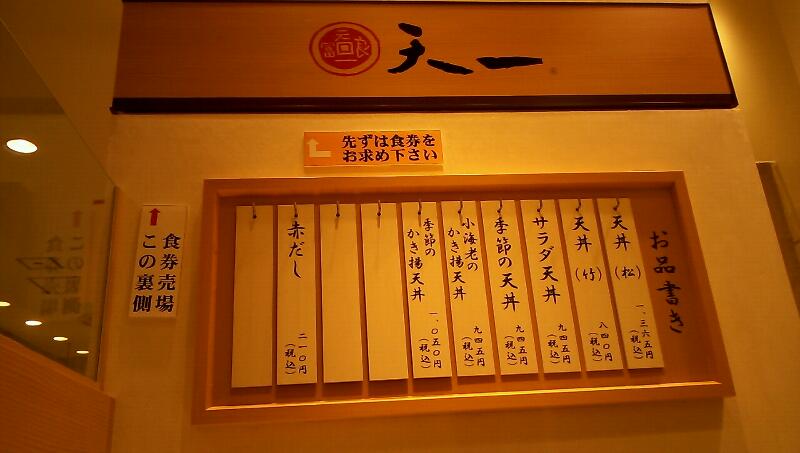 天一
先ずは食券を
お求め下さい
お品書き
天丼（松） 一、三六五円（税込）
天丼（竹） 八四〇円（税込）
サラダ天丼 九四五円（税込）
季節の天丼 九四五円（税込）
小海老の
かき揚天丼 九四五円（税込）
季節の
かき揚天丼 一、〇五〇円（税込）
赤だし 二一〇円（税込）
食券売場
この裏側